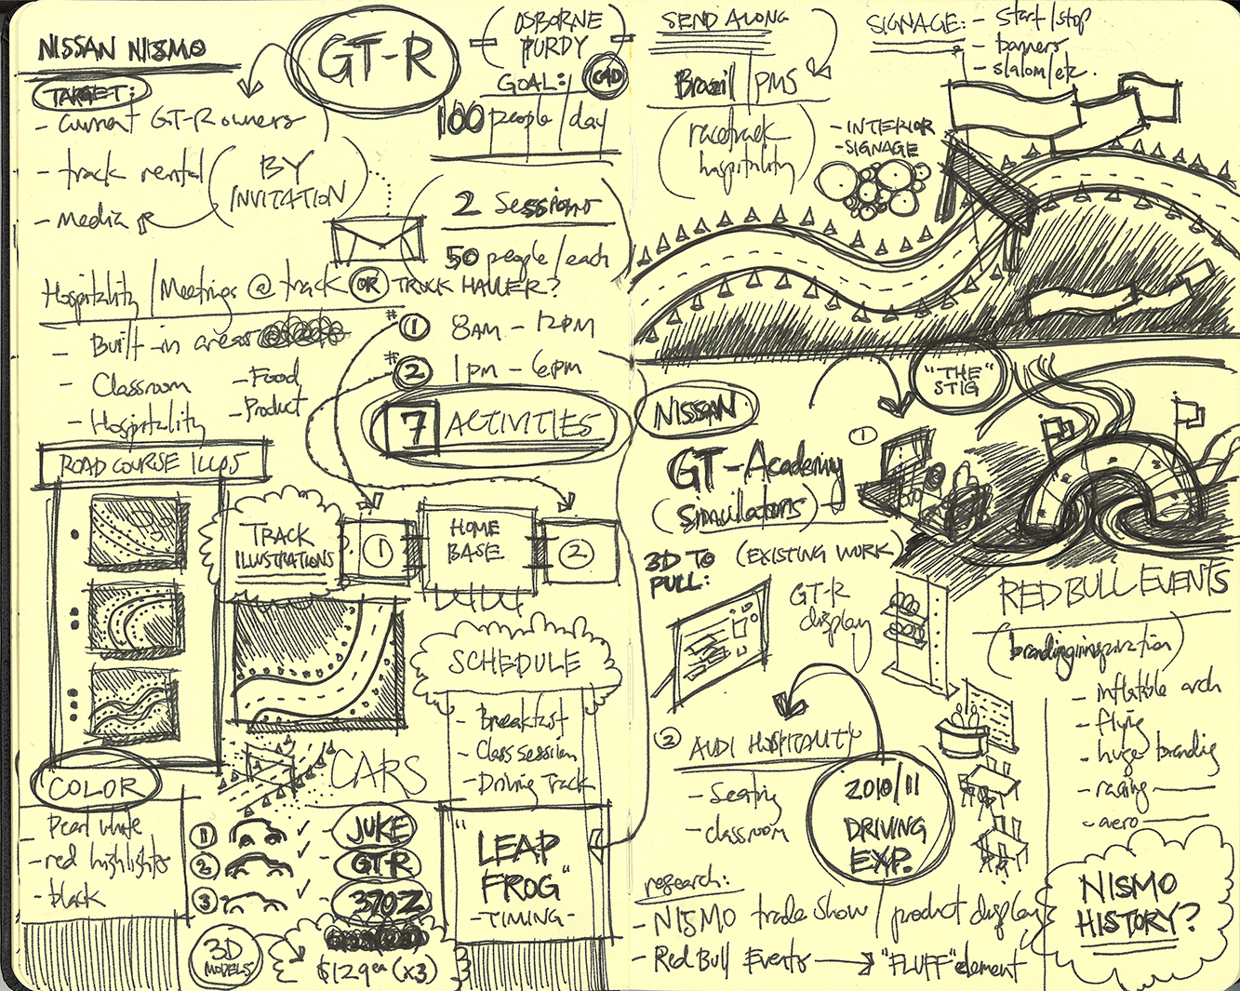 NISSAN NISMO
GT-R
OSBORNE
PURDY
TARGET:
- current GT-R owners
- track rental
- media
BY
INVITATION
GOAL:
100 people/day
2 Sessions
50 people/each
Hospitality/Meetings @ track OR TRUCK HAULER?
- Built-in areas
- Classroom
- Hospitality
- Food
- Product
#1 8AM - 12PM
#2 1PM - 6PM
7 ACTIVITIES
ROAD COURSE ILLUS
TRACK
ILLUSTRATIONS
1
HOME
BASE
2
SCHEDULE
- Breakfast
- Class session
- Driving Track
COLOR
- Pearl white
- red highlights
- black
CARS
1 ✓ - JUKE
2 ✓ - GT-R
3 ✓ - 370Z
3D
MODELS
$129 ea (x3)
"LEAP
FROG"
- TIMING -
SEND ALONG
Brazil/PMS
(racetrack
hospitality)
SIGNAGE: - start/stop
- banners
- slalom/etc.
- INTERIOR
- SIGNAGE
"THE"
STIG
NISSAN
GT-Academy
(Simulators)
1
3D TO
PULL:
(EXISTING WORK)
GT-R
display
2 AUDI HOSPITALITY
- Seating
- classroom
2010/11
DRIVING
EXP.
RED BULL EVENTS
(branding inspiration)
- inflatable arch
- flying
- huge branding
- racing
- aero
research:
- NISMO trade show/product display
- Red Bull Events → "FLUFF" element
NISMO
HISTORY?